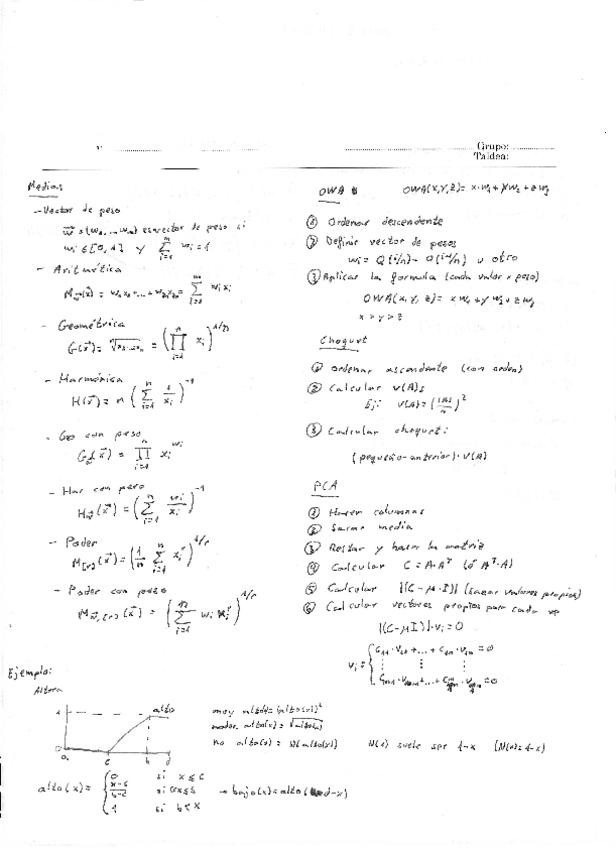 Grupo:
Taldea:
Medias
- Vector de peso
w⃗ = (w₁, ..., wₙ) es vector de peso si
wᵢ ∈ [0, 1] y ∑ᵢ₌₁ⁿ wᵢ = 1
- Aritmética
= ∑ᵢ₌₁ⁿ wᵢ xᵢ
- Geométrica
G(x⃗) = ⁿ√x₁...xₙ = (∏ᵢ₌₁ⁿ xᵢ)^1/n
- Harmónica
H(x⃗) = n (∑ᵢ₌₁ⁿ 1/xᵢ)⁻¹
- Geo con peso
G_w⃗(x⃗) = ∏ᵢ₌₁ⁿ xᵢ^wᵢ
- Har con peso
H_w⃗(x⃗) = (∑ᵢ₌₁ⁿ wᵢ/xᵢ)⁻¹
- Poder
M_[r](x⃗) = (1/n ∑ᵢ₌₁ⁿ xᵢ^r)^1/r
- Poder con peso
M_w⃗,[r](x⃗) = (∑ᵢ₌₁ⁿ wᵢ xᵢ^r)^1/r
OWA OWA(x,y,z) = x·w₁ + y w₂ + z w₃
① Ordenar descendente
② Definir vector de pesos
wᵢ = Q(i/n) - Q(i-1/n) u otro
③ Aplicar la formula (cada valor x peso)
OWA(x,y,z) = x w₁ + y w₂ + z w₃
x > y > z
Choquet
① Ordenar ascendente (con orden)
② Calcular v(A)s
Ej: v(A) = (|A|/n)²
③ Calcular choquet:
(pequeño - anterior) · v(A)
PCA
① Hacer columnas
② Sacar media
③ Restar y hacer la matriz
④ Calcular C = A·Aᵀ (ó Aᵀ·A)
⑤ Calcular |(C-μ·I)| (sacar valores propios)
⑥ Calcular vectores propios para cada vp
|(C-μI)|·vᵢ = 0
Ejemplo:
Altura
1
alto
0 c b d
muy alto(x) = (alto(x))²
no alto(x) = N(alto(x)) N(x) suele ser 1-x (N(x) = 1-x)
alto(x) = { 0 si x ≤ c
x-c/b-c si c<x≤b → bajo(x) = alto(d-x)
1 si b < x